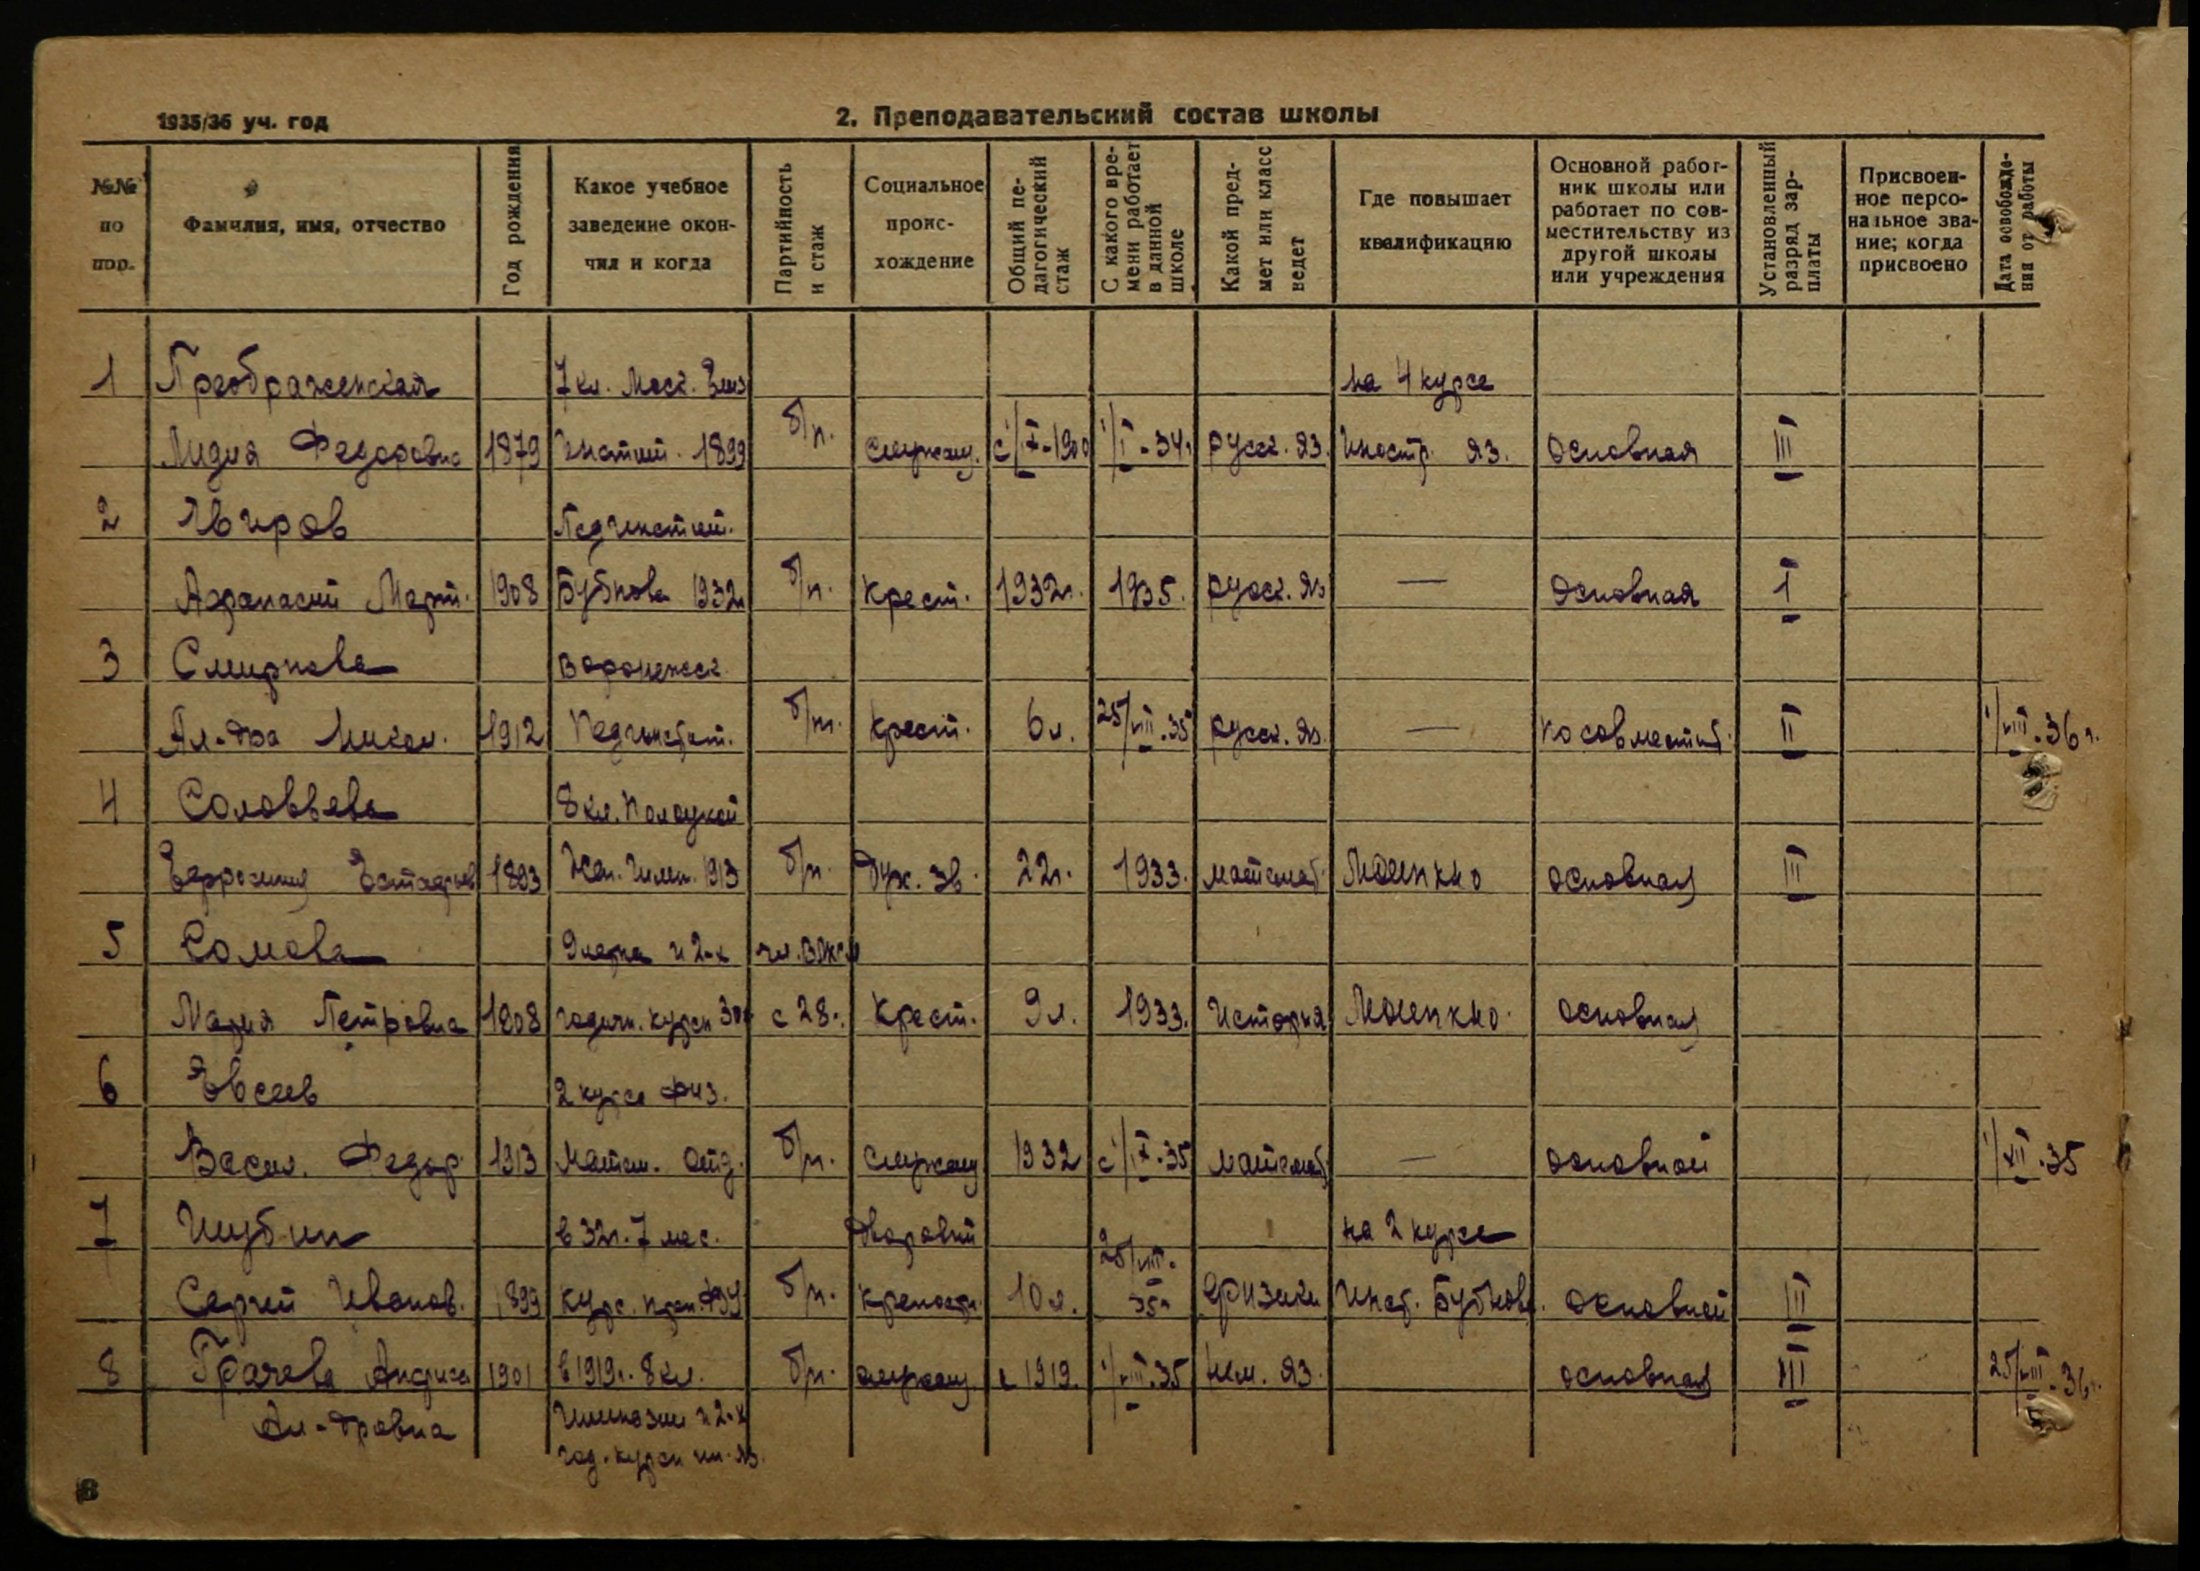 1935/36 уч. год
2. Преподавательский состав школы
№№ по пор.
Фамилия, имя, отчество
Год рождения
Какое учебное заведение окончил и когда
Партийность и стаж
Социальное происхождение
Общий педагогический стаж
С какого времени работает в данной школе
Какой предмет или класс ведет
Где повышает квалификацию
Основной работник школы или работает по совместительству из другой школы или учреждения
Установленный разряд зарплаты
Присвоенное персональное звание; когда присвоено
Дата освобождения от работы
1 Преображенская 7 кл. Моск. Елиз. на 4 курсе
Лидия Федоровна 1879 Инстит. 1899 б/п. служащ. с 1/IX-1900 1/I-34г. русск. яз. Иностр. яз. основная III
2 Педиинстит.
Афанасий Март. 1908 Бубнова 1932г б/п. крест. 1932г. 1935. русск. яз — основная I
3 Смирнова Воронежск.
Ал-дра Никол. 1912 Пединстит. б/п. крест. 6 л. 25/VIII.35 русск. яз. — по совместит. II 1/VIII.36г.
4 Соловьева 8 кл. Полоцкой
Евфросиния Евстафьев 1893 Жен. Гимн. 1913 б/п. Дух. зв. 22г. 1933. математ. МОИПКНО основная III
5 Сомова 9летка и 2-х чл. ВЛКСМ
Мария Петровна 1908 годичн. курсы 30г с 28г. крест. 9 л. 1933. История МОИПКНО. основная
6 Евсеев 2 курса физ.
Васил. Федор. 1913 Матем. отд. б/п. служащ 1932 с 1/IX.35 математ. — основной 1/XII.35
7 Шубин в 32г. 7 мес. Дворовый на 2 курсе
Сергей Иванов. 1899 курс. преп. ФЗУ б/п. крепостн. 10 л. 25/VIII.35г физика Инст. Бубнова. основной III
8 Грачева Анфиса 1901 в 1919г. 8 кл. б/п. служащ. с 1919. 1/VIII.35 нем. яз. основная III 25/VIII.36г.
Ал-дровна Гимназии и 2-х
год. курсы ин. яз.
8